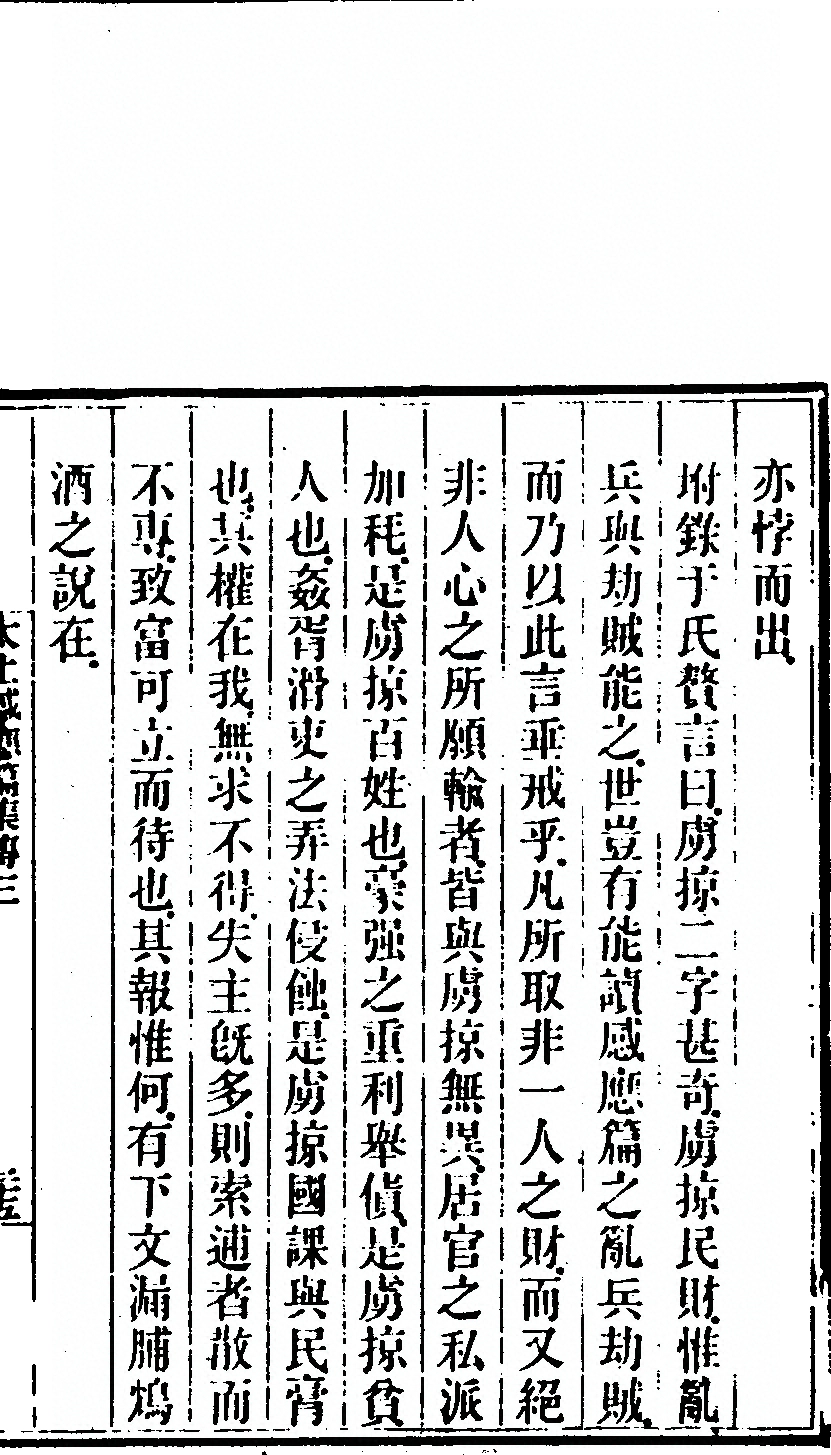 亦悖而出.
坿錄于氏贅言曰.虜掠二字甚奇.虜掠民財.惟亂
兵與劫賊能之.世豈有能讀感應篇之亂兵劫賊.
而乃以此言垂戒乎.凡所取非一人之財.而又絕
非人心之所願輸者.皆與虜掠無異.居官之私派
加耗.是虜掠百姓也.豪强之重利舉債.是虜掠貧
人也.姦胥滑吏之弄法侵蝕.是虜掠國課與民膏
也.其權在我.無求不得.失主旣多.則索逋者散而
不專.致富可立而待也.其報惟何.有下文漏脯鴆
酒之說在.
太上感應篇集傳三